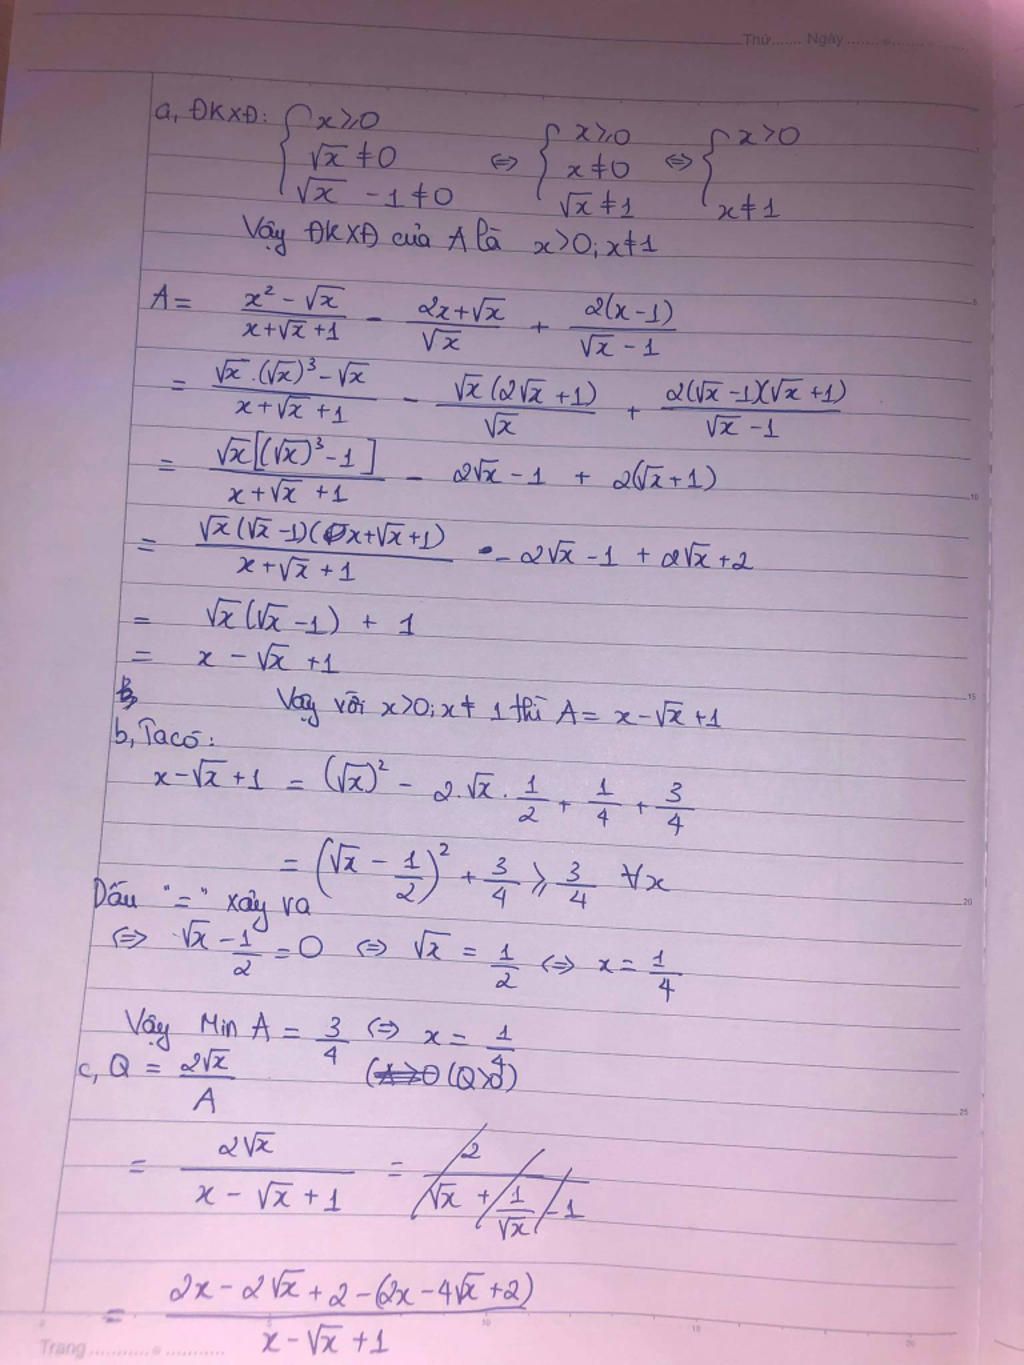 Thứ....... Ngày..................
a, ĐKXĐ: { x ⩾ 0 ; √x ≠ 0 ; √x - 1 ≠ 0 ⇔ { x ⩾ 0 ; x ≠ 0 ; √x ≠ 1 ⇔ { x > 0 ; x ≠ 1
Vậy ĐKXĐ của A là x > 0; x ≠ 1
A = (x² - √x)/(x + √x + 1) - (2x + √x)/√x + 2(x - 1)/(√x - 1)
= (√x . (√x)³ - √x)/(x + √x + 1) - √x (2√x + 1)/√x + 2(√x - 1)(√x + 1)/(√x - 1)
= √x[(√x)³ - 1]/(x + √x + 1) - 2√x - 1 + 2(√x + 1)
= √x (√x - 1)(x + √x + 1)/(x + √x + 1) - 2√x - 1 + 2√x + 2
= √x (√x - 1) + 1
= x - √x + 1
Vậy với x > 0; x ≠ 1 thì A = x - √x + 1
b, Ta có:
x - √x + 1 = (√x)² - 2.√x . 1/2 + 1/4 + 3/4
= (√x - 1/2)² + 3/4 ⩾ 3/4 ∀x
Dấu "=" xảy ra
⇔ √x - 1/2 = 0 ⇔ √x = 1/2 ⇔ x = 1/4
Vậy Min A = 3/4 ⇔ x = 1/4
c, Q = 2√x/A (A>0 (Q>0)
= 2√x/(x - √x + 1) = 2/(√x + 1/√x - 1)
= (2x - 2√x + 2 - (2x - 4√x + 2))/(x - √x + 1)
Trang ......................